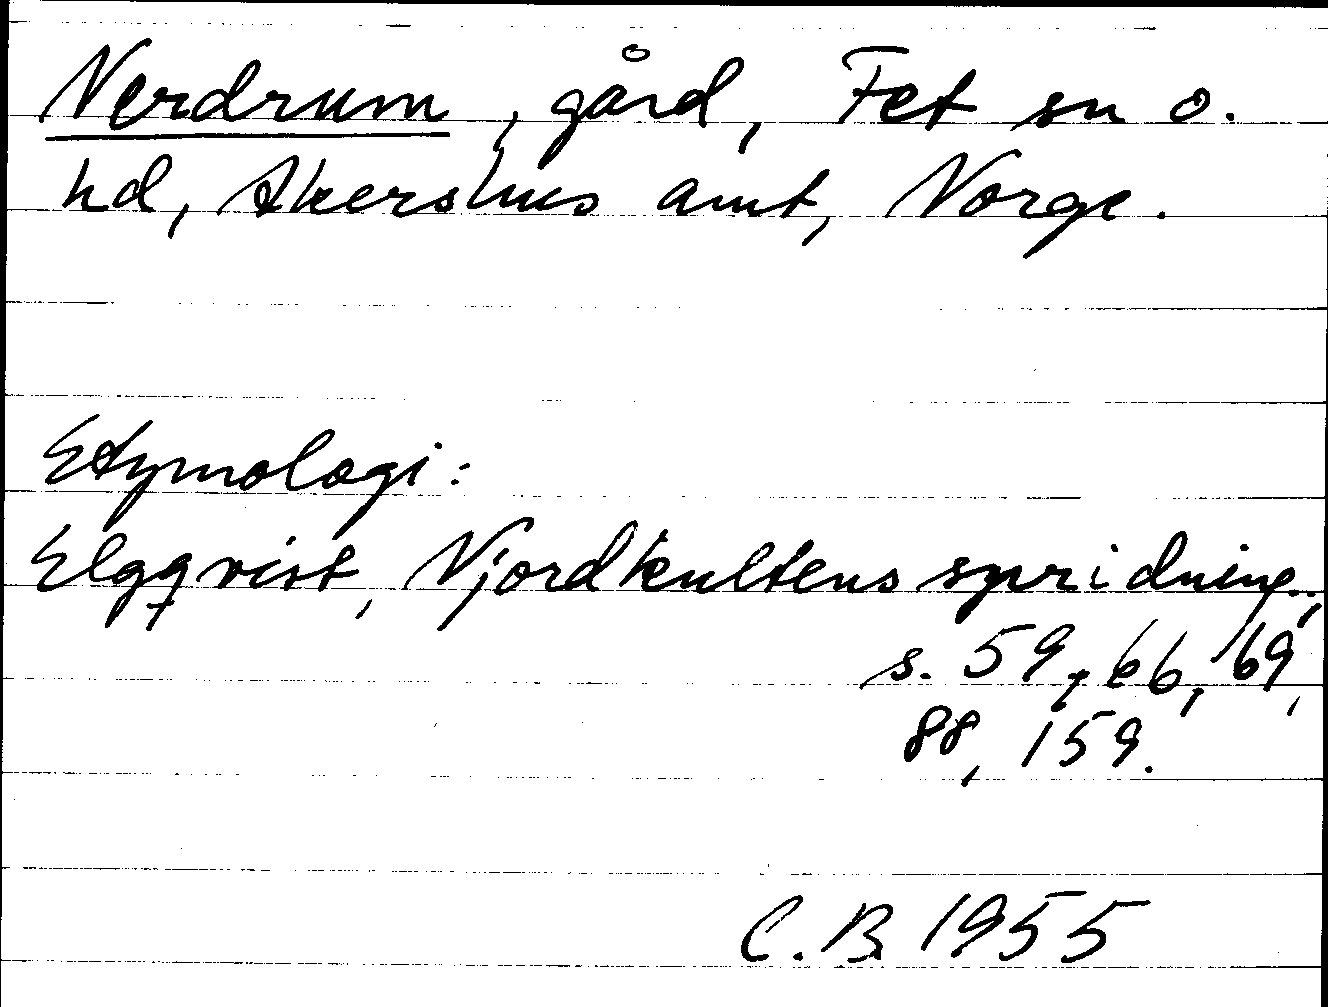 Nerdrum, gård, Fet sn o.
hd, Akershus amt, Norge.
Etymologi:
Elgqvist, Njordkultens spridning.,
s. 59, 66, 69,
88, 159.
C.B 1955